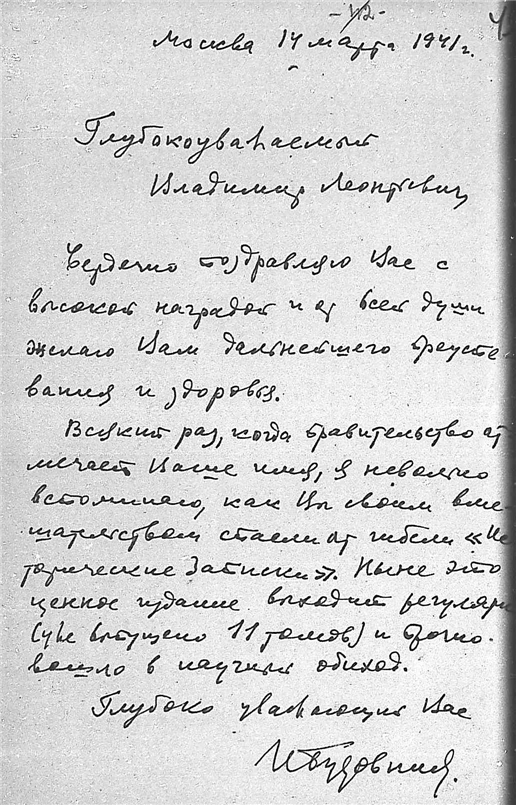 -112-
Москва 14 марта 1941 г.
Глубокоуважаемый
Владимир Леонтьевич,
Сердечно поздравляю Вас с
высокой наградой и от всей души
желаю Вам дальнейшего преуспе-
вания и здоровья.
Всякий раз, когда правительство от-
мечает Ваше имя, я невольно
вспоминаю, как Вы своим вме-
шательством спасли от гибели «Ис-
торические Записки». Ныне это
ценное издание выходит регулярно
(уже выпущено 11 томов) и прочно
вошло в научный обиход.
Глубоко уважающий Вас
И Будовниц.